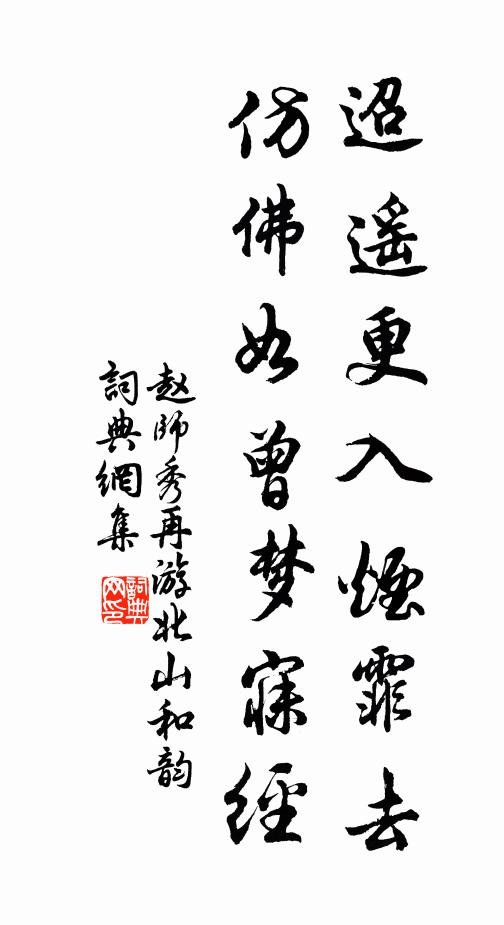 迢遥更入煙霏去
仿佛如曾梦寐經
赵師秀再游北山和韵
詞典網集
詞典网印